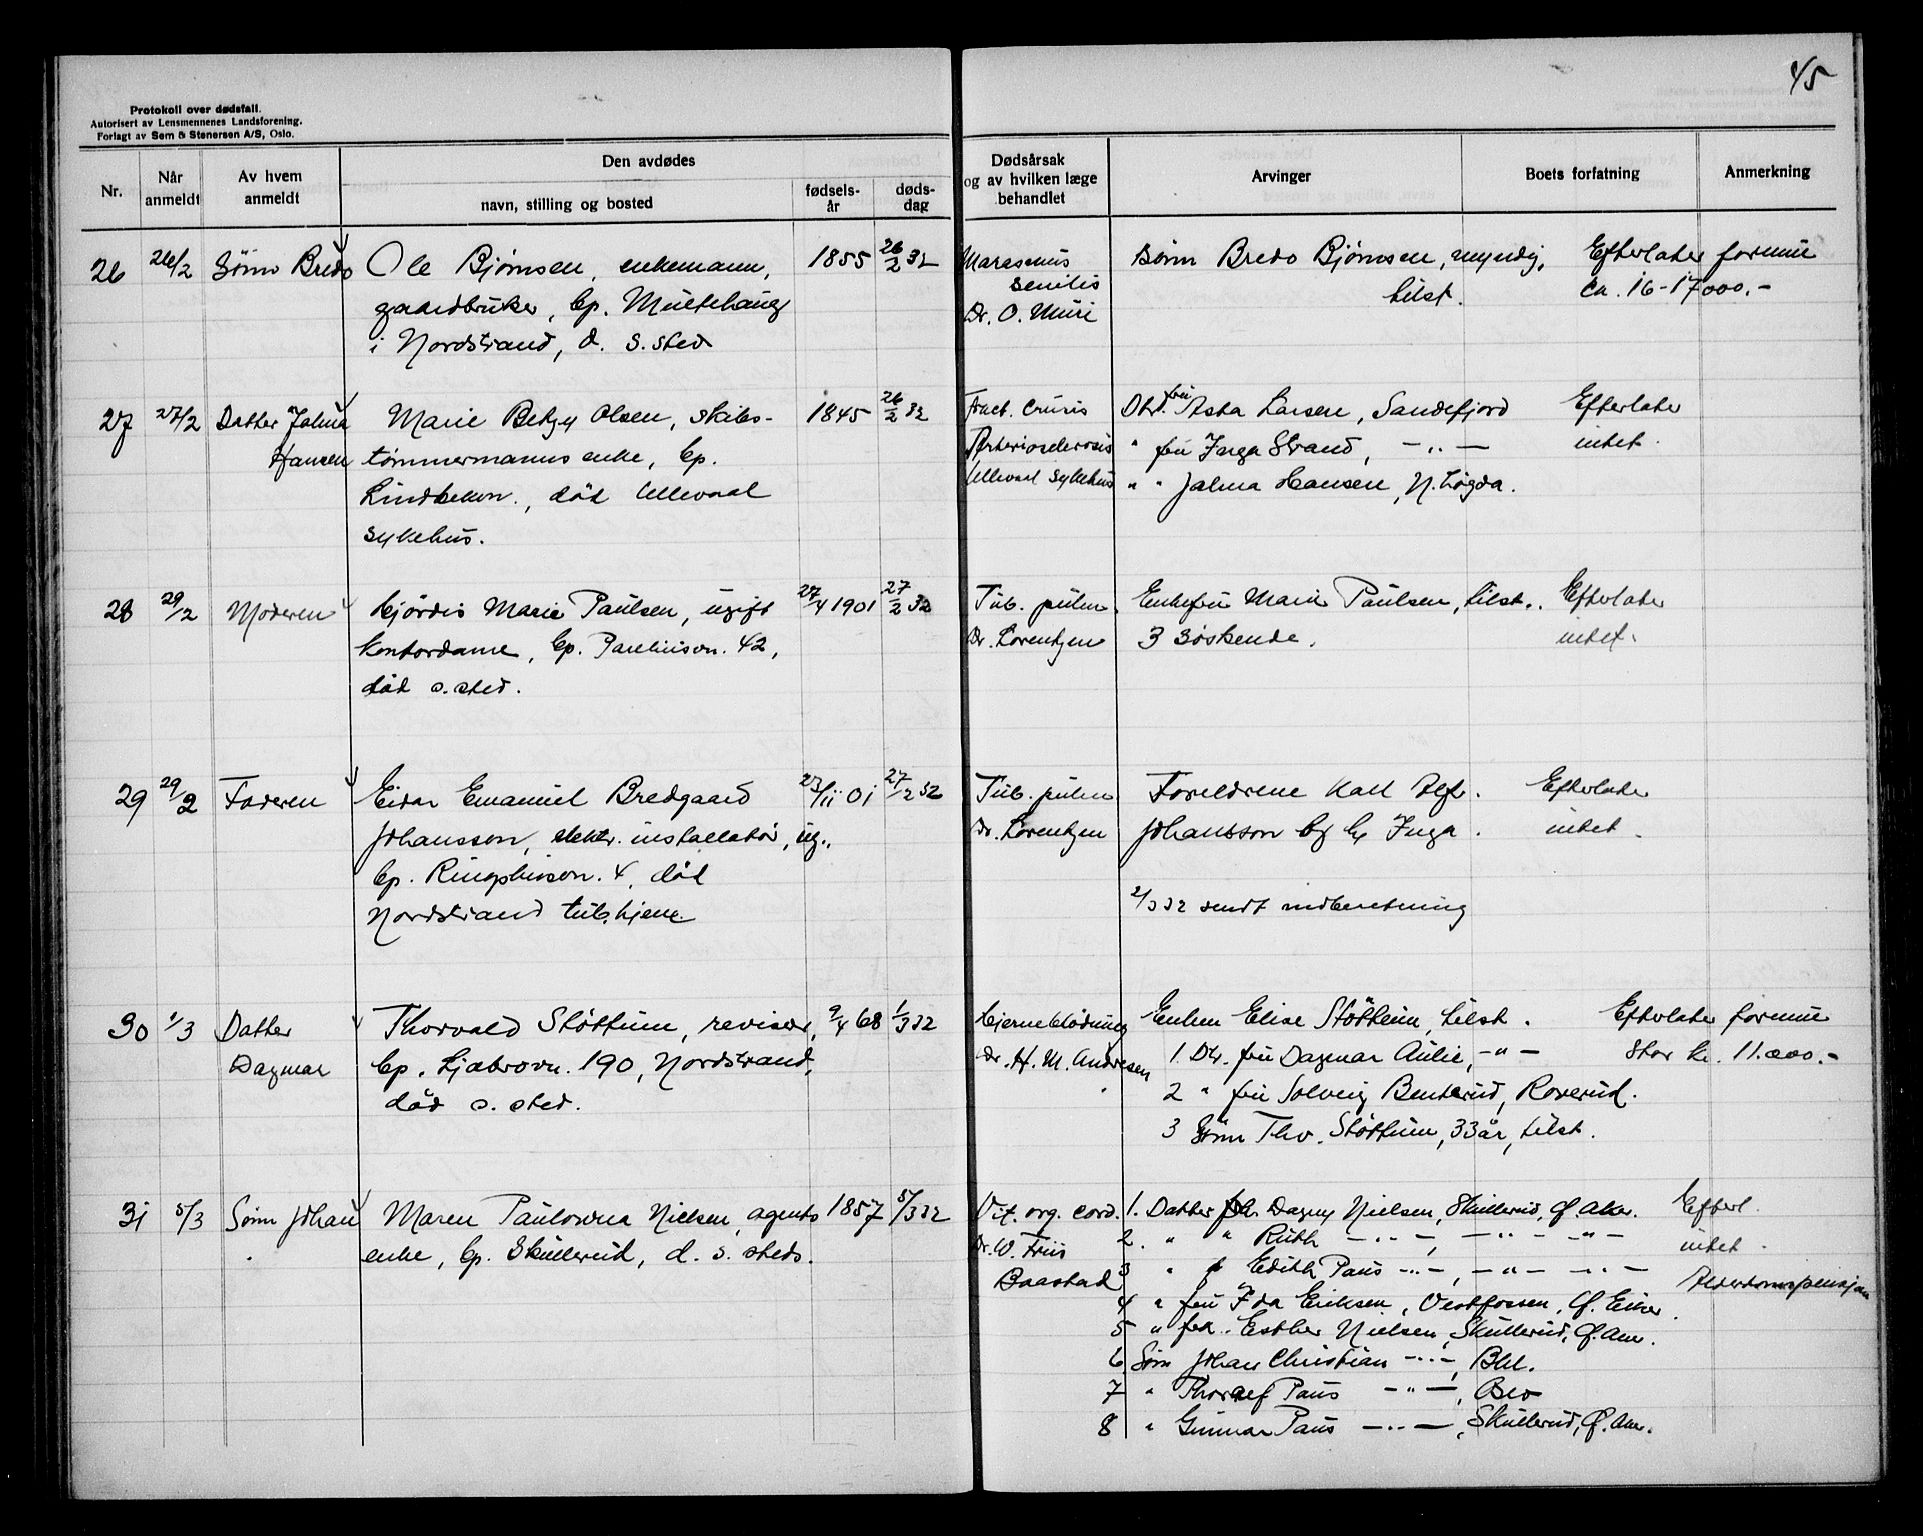 45
Protokoll over dødsfall.
Autorisert av Lensmennenes Landsforening.
Forlagt av Sem & Stenersen A/S, Oslo.
Nr.
Når anmeldt
Av hvem anmeldt
Den avdødes
navn, stilling og bosted
fødsels-år
døds-dag
Dødsårsak og av hvilken læge behandlet
Arvinger
Boets forfatning
Anmerkning
26 26/2 Sønn Bredo Ole Bjørnsen, enkemann, 1855 26/2 32 Marasmus Sønn Bredo Bjørnsen, myndig, Efterlater formue
gaardbruker, bp. Multehaug senilis tilst. ca. 16-17000.-
i Nordstrand, d. s. sted Dr. O. Muri
27 27/2 Datter Jalma Marie Betzy Olsen, skibs- 1845 26/2 32 Fract. cruris Dtr. fru Asta Larsen, Sandefjord Efterlater
Hansen tømmermanns enke, bp. Arteriosclerosis " fru Inga Strand, - " - intet.
død Ullevaal Ullevaal sykehus " " Jalma Hansen, N. Høgda.
sykehus.
28 29/2 Moderen Hjørdis Marie Paulsen, ugift 27/4 1901 27/2 32 Tub. pulm. Enkefru Marie Paulsen, tilst. Efterlater
kontordame, bp. 42, Dr. Lorentzen 3 søskende. intet.
død s. sted.
29 29/2 Faderen Eidar Emanuel Bredgaard 23/11 01 27/2 32 Tub. pulm Foreldrene Karl Alf. Efterlater
Johansson, elektr. installatør, ug., Dr. Lorentzen Johansson og h. Inga. intet.
bp. Ringshusvn. 4, død
Nordstrand tub.hjem 2/3 32 sendt indberetning
30 1/3 Datter Thorvald Støttum, revisor, 9/4 68 1/3 32 Hjerneblødning Enken Elise Støttum, tilst. Efterlater formue
Dagmar bp. Ljabrovn. 190, Nordstrand, Dr. H. M. Andresen 1. Dtr. fru Dagmar Aulie, - " - stor kr. 11.000.-
død s. sted. 2 " fru Solveig Benterud, Roverud.
3 Sønn Thv. Støttum, 33 år, tilst.
31 5/3 Sønn Johan Maren Paulowna Nielsen, agents 1857 5/3 32 Vit. org. cord. 1. Datter frk. Dagny Nielsen, Skullerud, Ø. Aker. Efterl.
enke, bp. Skullerud, d. s. steds. Dr. W. Friis 2. " " Ruth - " -, - " - - " - intet.
Baastad 3 " " Edith Paus - " -, - " - - " - Alderdomspensjon
4 " fru Ida Eriksen, Vestfossen, Ø. Eiker.
5 " frk. Esther Nielsen, Skullerud, Ø. Aker.
6 Sønn Johan Christian - " -, Bkl.
7 " Thoralf Paus - " -, Oslo
8 " Gunnar Paus - " -, Skullerud, Ø. Aker.